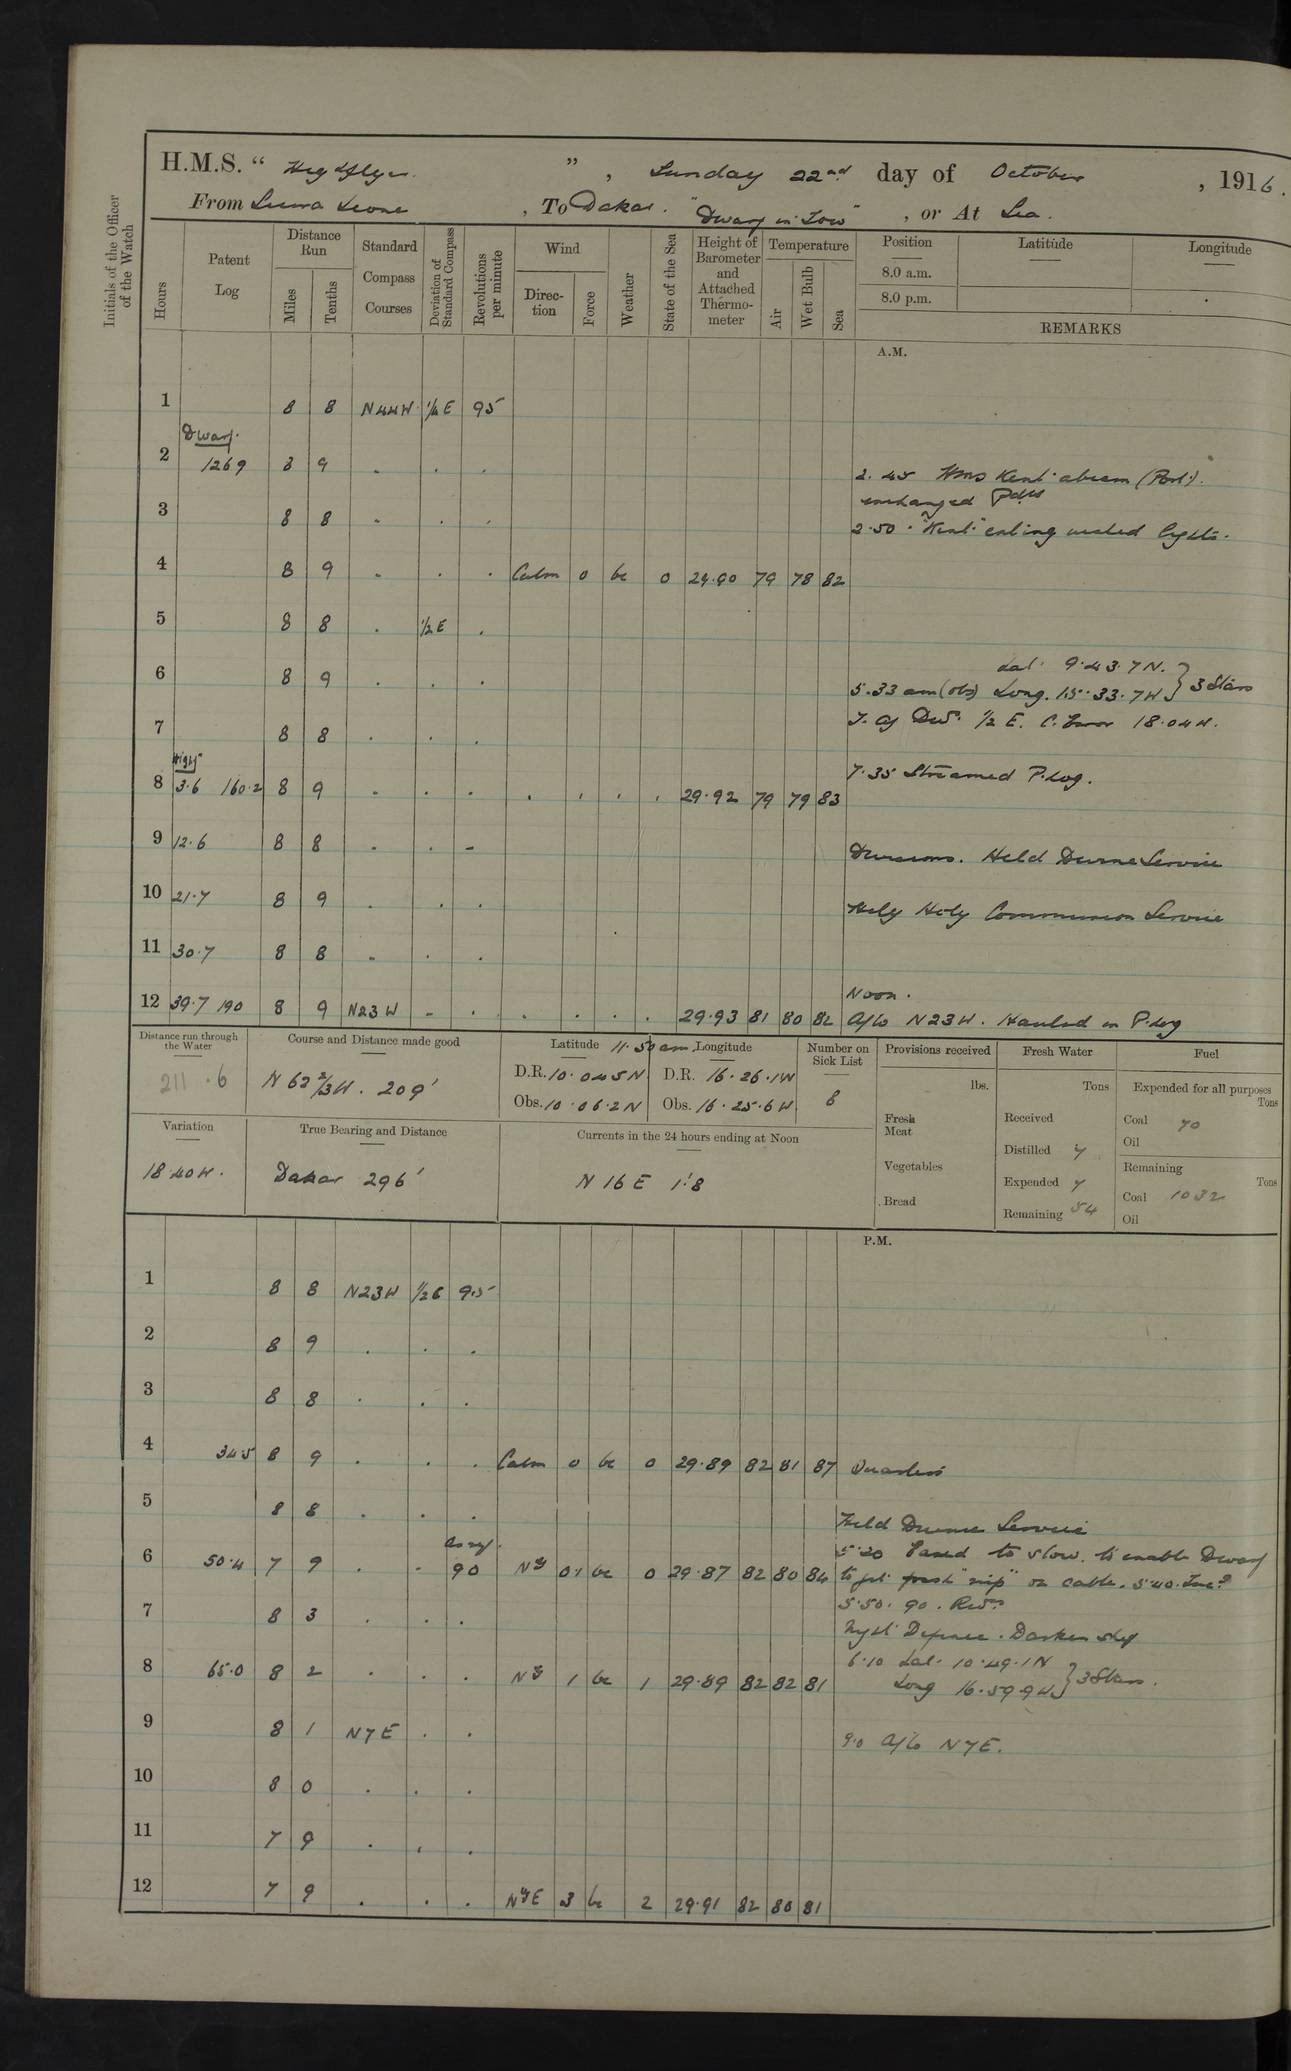 H.M.S. “ Highflyer. ” , Sunday 22nd day of October , 1916.
From Sierra Leone , To Dakar. "Dwarf in Tow" , or At Sea.
Initials of the Officer of the Watch
Hours
Patent Log
Distance Run
Miles
Tenths
Standard Compass Courses
Deviation of Standard Compass
Revolutions per minute
Wind
Direc- tion
Force
Weather
State of the Sea
Height of Barometer and Attached Thermo- meter
Temperature
Air
Wet Bulb
Sea
Position Latitude Longitude
8.0 a.m.
8.0 p.m.
REMARKS
A.M.
1 8 8 N44W ¼E 95
Dwarf.
2 1269 8 9 . . .
2.45 HMS Kent abeam (Port).
exchanged Pdts
3 8 8 . . .
2.50 . "Kent"
lights.
4 8 9 . . . Calm 0 bc 0 29.90 79 78 82
5 8 8 . ½E .
Lat. 9.43.7N.
6 8 9 . . .
5.33 am (obs) Long. 15.33.7W } 3 Stars
T. Dev. ½ E. C. Error 18.04W.
7 8 8 . . .
High
7.35 Streamed P. Log.
8 3.6 160.2 8 9 . . . . . . . 29.92 79 79 83
9 12.6 8 8 . . -
Divisions. Held Divine Service
10 21.7 8 9 . . .
Held Holy Communion Service
11 30.7 8 8 . . .
Noon.
12 39.7 190 8 9 N23W - . . . . . 29.93 81 80 82 A/Co N23W. Hauled in P. Log
Distance run through the Water
211.6
Course and Distance made good
N 62 ⅔W. 209'
Latitude 11.50 am. Longitude
D.R. 10.04.5N D.R. 16.26.1W
Obs. 10.06.2N Obs. 16.25.6W
Number on Sick List
8
Provisions received
lbs.
Fresh Meat
Vegetables
Bread
Fresh Water
Tons
Received
Distilled 7
Expended 7
Remaining 54
Fuel
Expended for all purposes
Tons
Coal 70
Oil
Remaining
Tons
Coal 1032
Oil
Variation
18.40W.
True Bearing and Distance
Dakar 296'
Currents in the 24 hours ending at Noon
N 16 E 1'.8
P.M.
1 8 8 N23W ½E 95
2 8 9 . . .
3 8 8 . . .
4 34.5 8 9 . . . Calm 0 bc 0 29.89 82 81 87 Quarters
5 8 8 . . .
Held Divine Service
5.20 Eased to slow. to enable Dwarf
6 50.4 7 9 . . 90 N'y 0.1 bc 0 29.87 82 80 84 to get fresh "nip" on cable. 5.40.
5.50. 90. Revs.
7 8 3 . . .
Night Defence. Darken ship
6.10 Lat. 10.49.1N
8 65.0 8 2 . . . N'y 1 bc 1 29.89 82 82 81
Long 16.59.9W } 3 Stars.
9 8 1 N7E . .
9.0 A/Co N7E.
10 8 0 . . .
11 7 9 . . .
12 7 9 . . . N'yE 3 bc 2 29.91 82 80 81